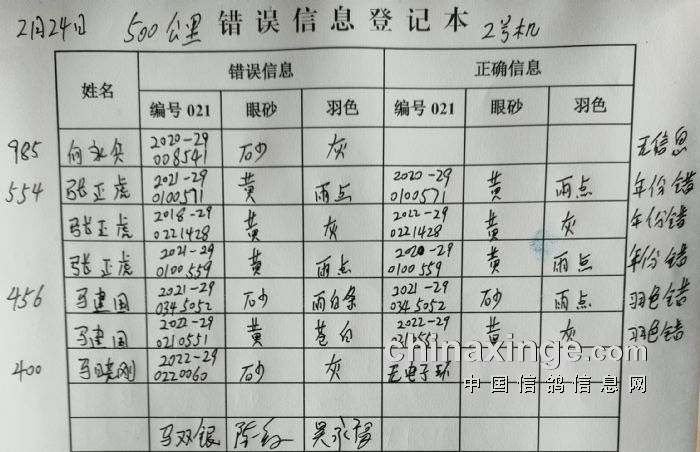 2月24日 500公里 错误信息登记本 2号机
姓名 错误信息 正确信息
编号021 眼砂 羽色 编号021 眼砂 羽色
985 何永兵 2020-29 砂 灰 无信息
008541
554 张正虎 2021-29 黄 雨点 2020-29 黄 雨点 年份错
0100571 0100571
张正虎 2018-29 黄 灰 2022-29 黄 灰 年份错
0221428 0221428
张正虎 2021-29 黄 雨点 2020-29 黄 雨点 年份错
0100559 0100559
456 马建国 2021-29 砂 雨白条 2021-29 砂 雨点 羽色错
0345052 0345052
马建国 2022-29 黄 苍白 2022-29 黄 灰 羽色错
0210551
chinaxinge.com
400 马晓刚 2022-29 砂 灰 无电子环
0220060
中国信鸽信息网
马双银 陈红 吴永福